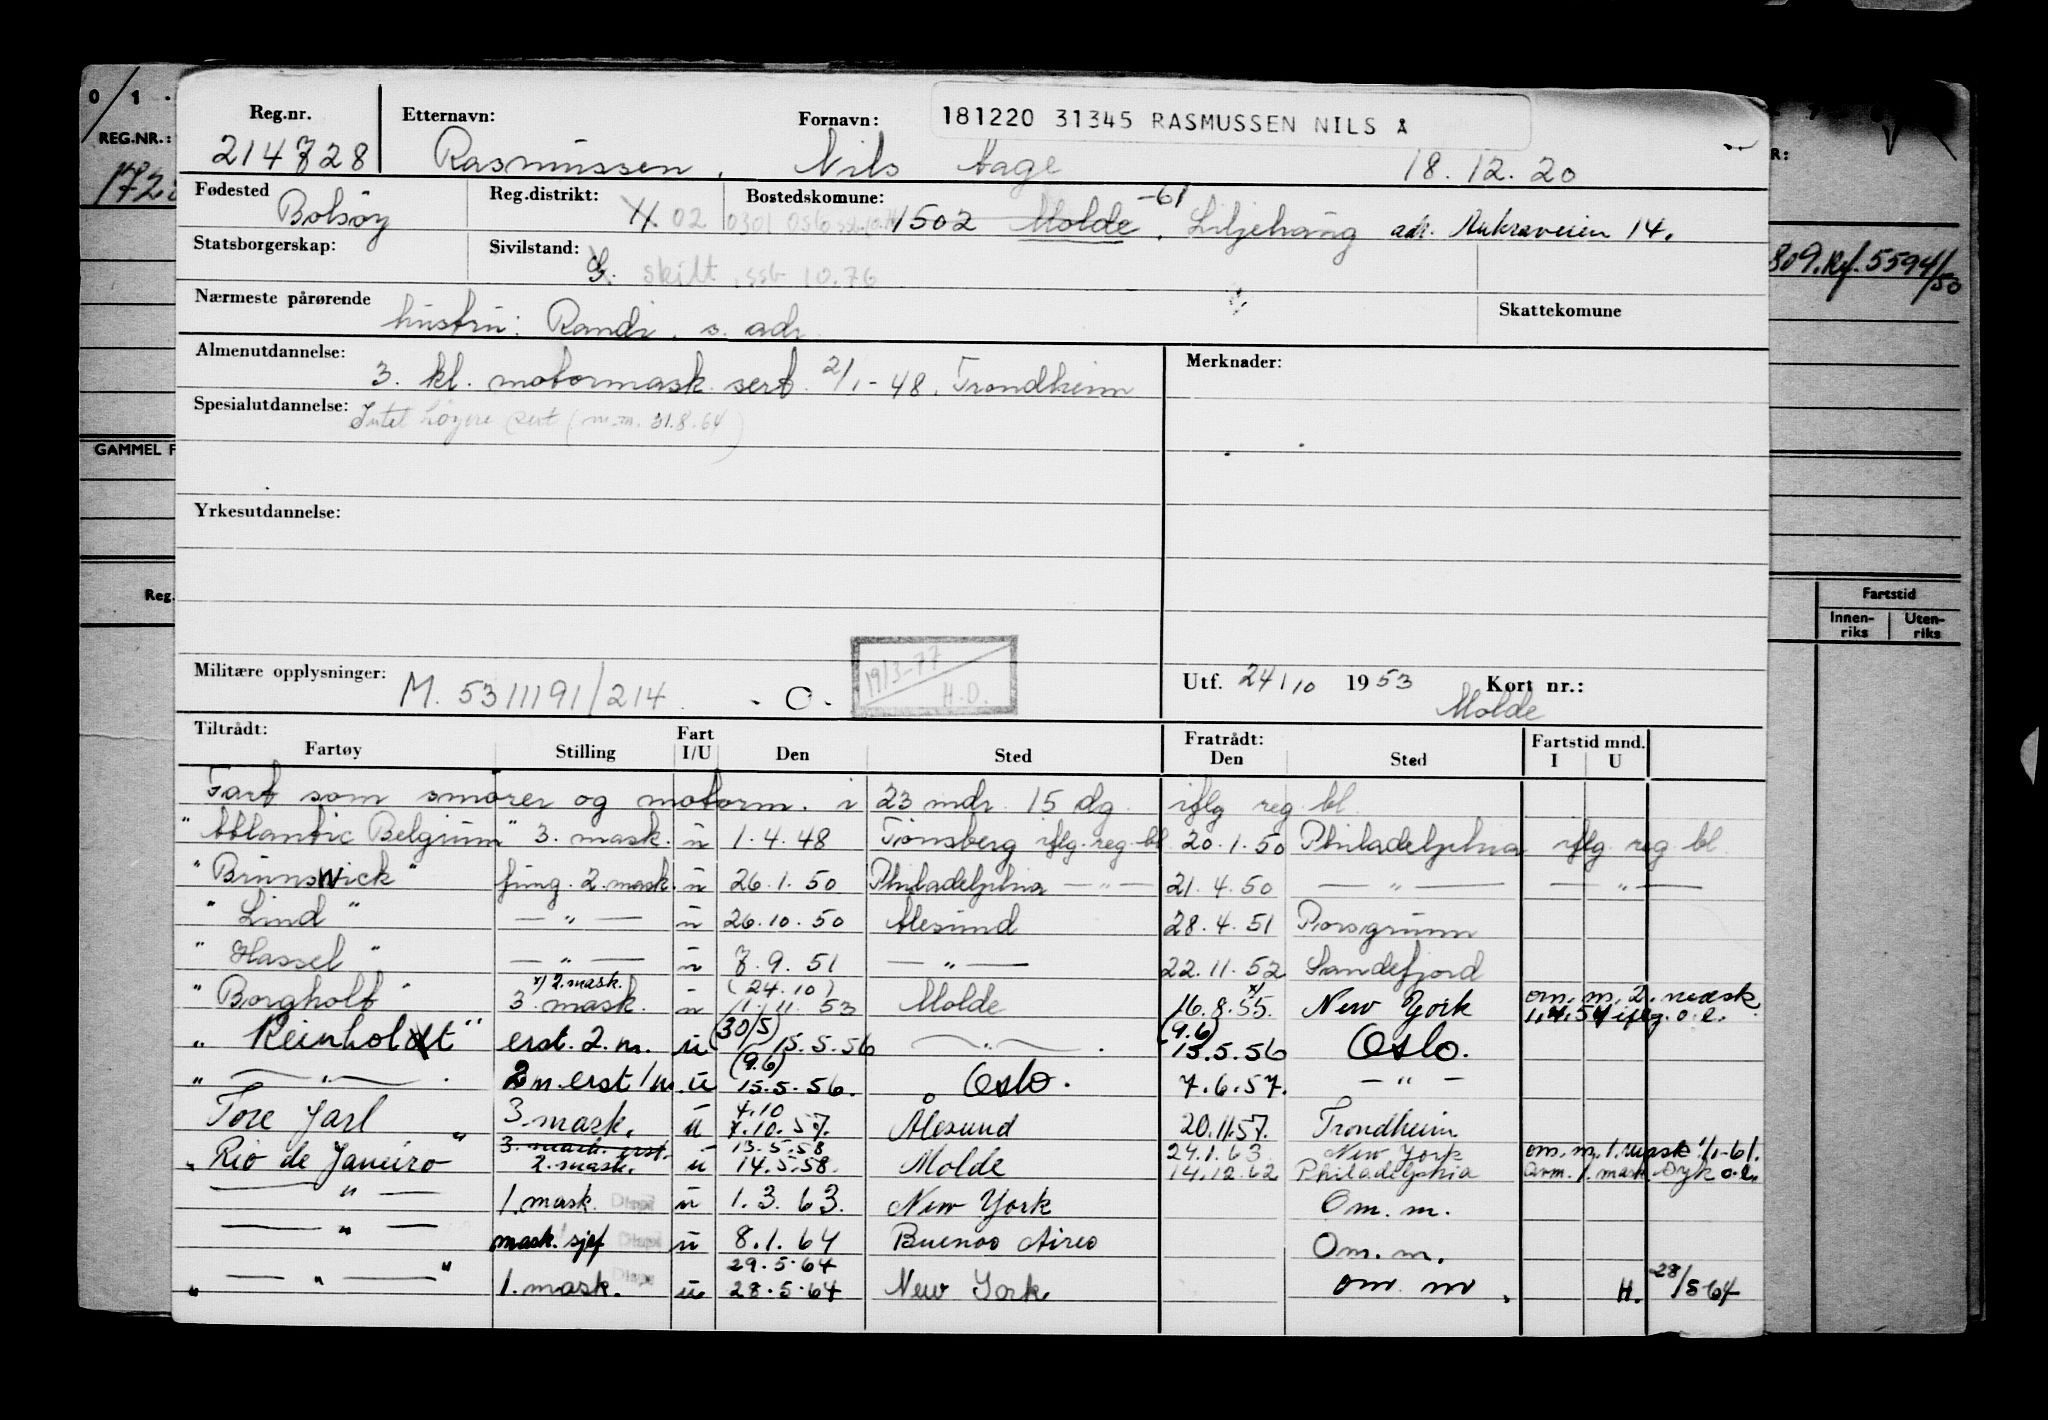 0/1.
REG.NR.:
Reg.nr. Etternavn: Fornavn: 181220 31345 RASMUSSEN NILS Å
214728 Rasmussen, Nils Aage 18.12.20
Fødested Reg.distrikt: Bostedskomune: -61
Bolsöy 02 0301 Oslo 1502 Molde, Liljehaug adr. Aukraveien 14.
Statsborgerskap: Sivilstand: G. skilt, ssb 10.76
809. Ref. 5594/50
Nærmeste pårørende Skattekomune
hustru: Randi, s. adr.
Almenutdannelse: Merknader:
3. kl. motormask. sert. 2/1-48, Trondheim
Spesialutdannelse: Intet höyere sert (m.m. 31.8.64)
GAMMEL F
Yrkesutdannelse:
Reg.
Fartstid
Innen-riks Uten-riks
Militære opplysninger: M. 5311191/214 - O. 19/3-77 H.O.
Utf. 24/10 1953 Kort nr.:
Molde
Tiltrådt: Fart Fratrådt: Fartstid mnd.
Fartøy Stilling I/U Den Sted Den Sted I U
Fart som smörer og motorm. i 23 mdr. 15 dg. iflg reg. bl
"Atlantic Belgium" 3. mask. u 1.4.48 Tönsberg iflg. reg. bl. 20.1.50 Philadelphia iflg. reg. bl.
"Brunswick" fung. 2. mask. u 26.1.50 Philadelphia — " — 21.4.50 — " — — " —
"Lind" — " — u 26.10.50 Ålesund 28.4.51 Porsgrunn
"Hassel" — " — u 7.9.51 — " — 22.11.52 Sandefjord
x) 2. mask. (24.10) x) om. m. 2. mask.
"Borgholt" 3. mask. u 1.11.53 Molde 16.8.55. New York 1.4.54 iflg. o.l.
"Reinholt" erst. 2. m. u (30/5) 15.5.56 — " — . (9.6) 15.5.56 Oslo.
" — " — . 2 m. erst 1 m. u (9.6) 15.5.56. Oslo. 7.6.57. — " —
4.10
Tore Jarl " 3. mask. u 7.10.57. Ålesund 20.11.57. Trondheim
3. mask. erst. 13.5.58 24.1.63 New York om. m. 1. mask 1/1-61.
" Rio de Janeiro 2. mask. u 14.5.58. Molde 14.12.62 Philadelphia 1. mask. o.l.
— " — 1. mask. Disp u 1.3.63. New York Om. m.
— " — mask. sjef Disp u 8.1.64 Buenos Aires Om. m.
29.5.64
" — " — " 1. mask. Disp u 28.5.64 New York om m. H. 28/5-64